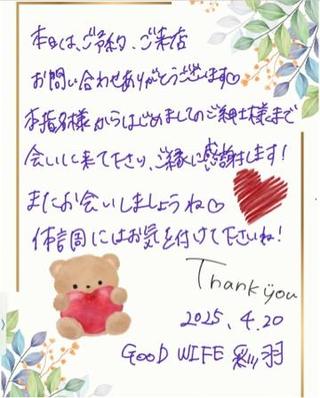 本日は、ご予約、ご来店
お問い合わせありがとうございます♡
本指名様からはじめましてのご紳士様まで
会いに来て下さり、ご縁に感謝します!
またお会いしましょうね♡
体調にはお気を付けて下さいね!
Thank you
2025.4.20
GOOD WIFE 彩羽